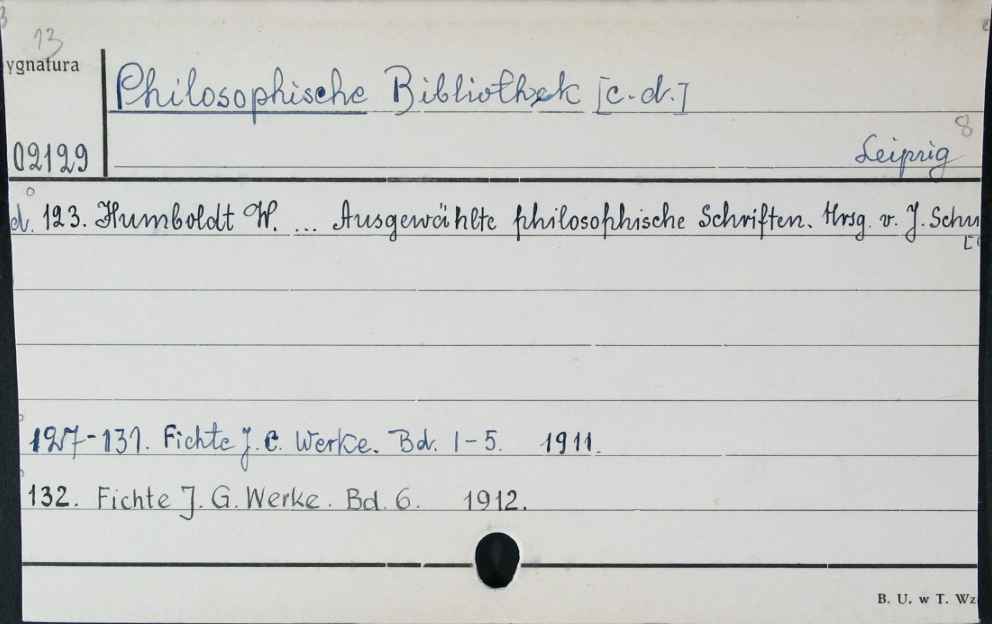 13
ygnatura
Philosophische Bibliothek [c.d.]
8
02129
Leipzig
d. 123. Humboldt W. ... Ausgewählte philosophische Schriften. Hrsg. v. J. Schu
127-131. Fichte J. G. Werke. Bd. 1-5. 1911.
132. Fichte J. G. Werke. Bd. 6. 1912.
B. U. w T. Wz